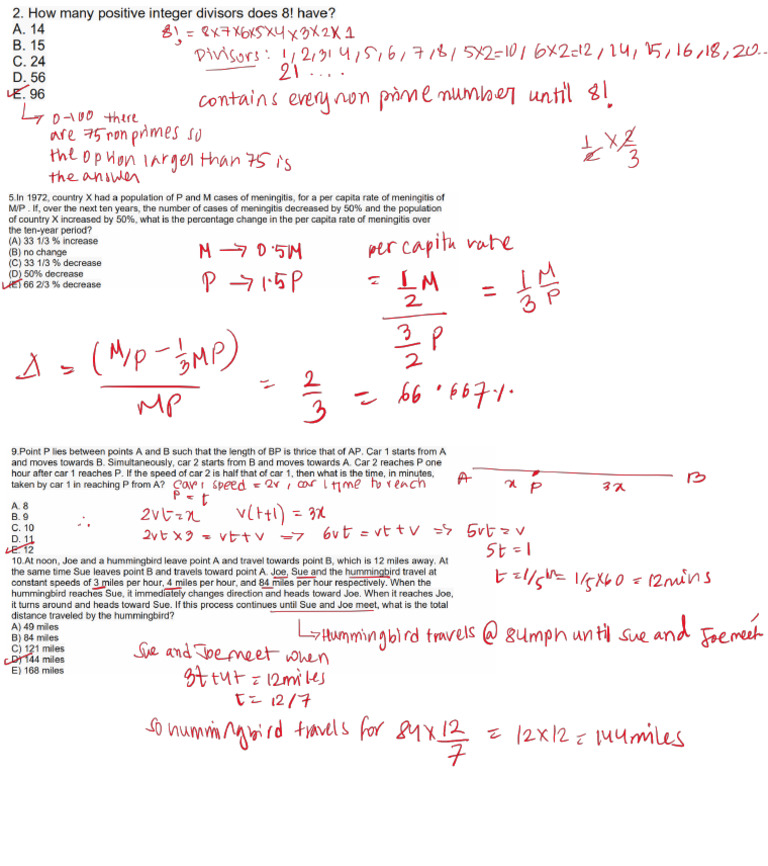 2. How many positive integer divisors does 8! have?
A. 14
B. 15
C. 24
D. 56
E. 96
8! = 8x7x6x5x4x3x2x1
Divisors: 1,2,3,4,5,6,7,8,5x2=10,6x2=12,14,15,16,18,20..
21 ....
contains every non prime number until 8!
0-100 there
are 75 non primes so
the option larger than 75 is
the answer
1/2 x 2/3
5.In 1972, country X had a population of P and M cases of meningitis, for a per capita rate of meningitis of
M/P . If, over the next ten years, the number of cases of meningitis decreased by 50% and the population
of country X increased by 50%, what is the percentage change in the per capita rate of meningitis over
the ten-year period?
(A) 33 1/3 % increase
(B) no change
(C) 33 1/3 % decrease
(D) 50% decrease
(E) 66 2/3 % decrease
M → 0.5M
P → 1.5P
per capita rate
= 1/2 M / 3/2 P = 1/3 M/P
Δ = (M/P - 1/3 MP) / MP = 2/3 = 66.667%
9.Point P lies between points A and B such that the length of BP is thrice that of AP. Car 1 starts from A
and moves towards B. Simultaneously, car 2 starts from B and moves towards A. Car 2 reaches P one
hour after car 1 reaches P. If the speed of car 2 is half that of car 1, then what is the time, in minutes,
taken by car 1 in reaching P from A?
A. 8
B. 9
C. 10
D. 11
E. 12
Car 1 speed = 2v, car 1 time to reach
P = t
A x P 3x B
∴ 2vt = x v(t+1) = 3x
2vt x 3 = vt+v => 6vt = vt+v => 5vt = v
5t = 1
t = 1/5 hr = 1/5x60 = 12 mins
10.At noon, Joe and a hummingbird leave point A and travel towards point B, which is 12 miles away. At
the same time Sue leaves point B and travels toward point A. Joe, Sue and the hummingbird travel at
constant speeds of 3 miles per hour, 4 miles per hour, and 84 miles per hour respectively. When the
hummingbird reaches Sue, it immediately changes direction and heads toward Joe. When it reaches Joe,
it turns around and heads toward Sue. If this process continues until Sue and Joe meet, what is the total
distance traveled by the hummingbird?
A) 49 miles
B) 84 miles
C) 121 miles
D) 144 miles
E) 168 miles
Hummingbird travels @ 84mph until Sue and Joe meet
Sue and Joe meet when
3t + 4t = 12 miles
t = 12/7
so hummingbird travels for 84 x 12/7 = 12x12 = 144 miles